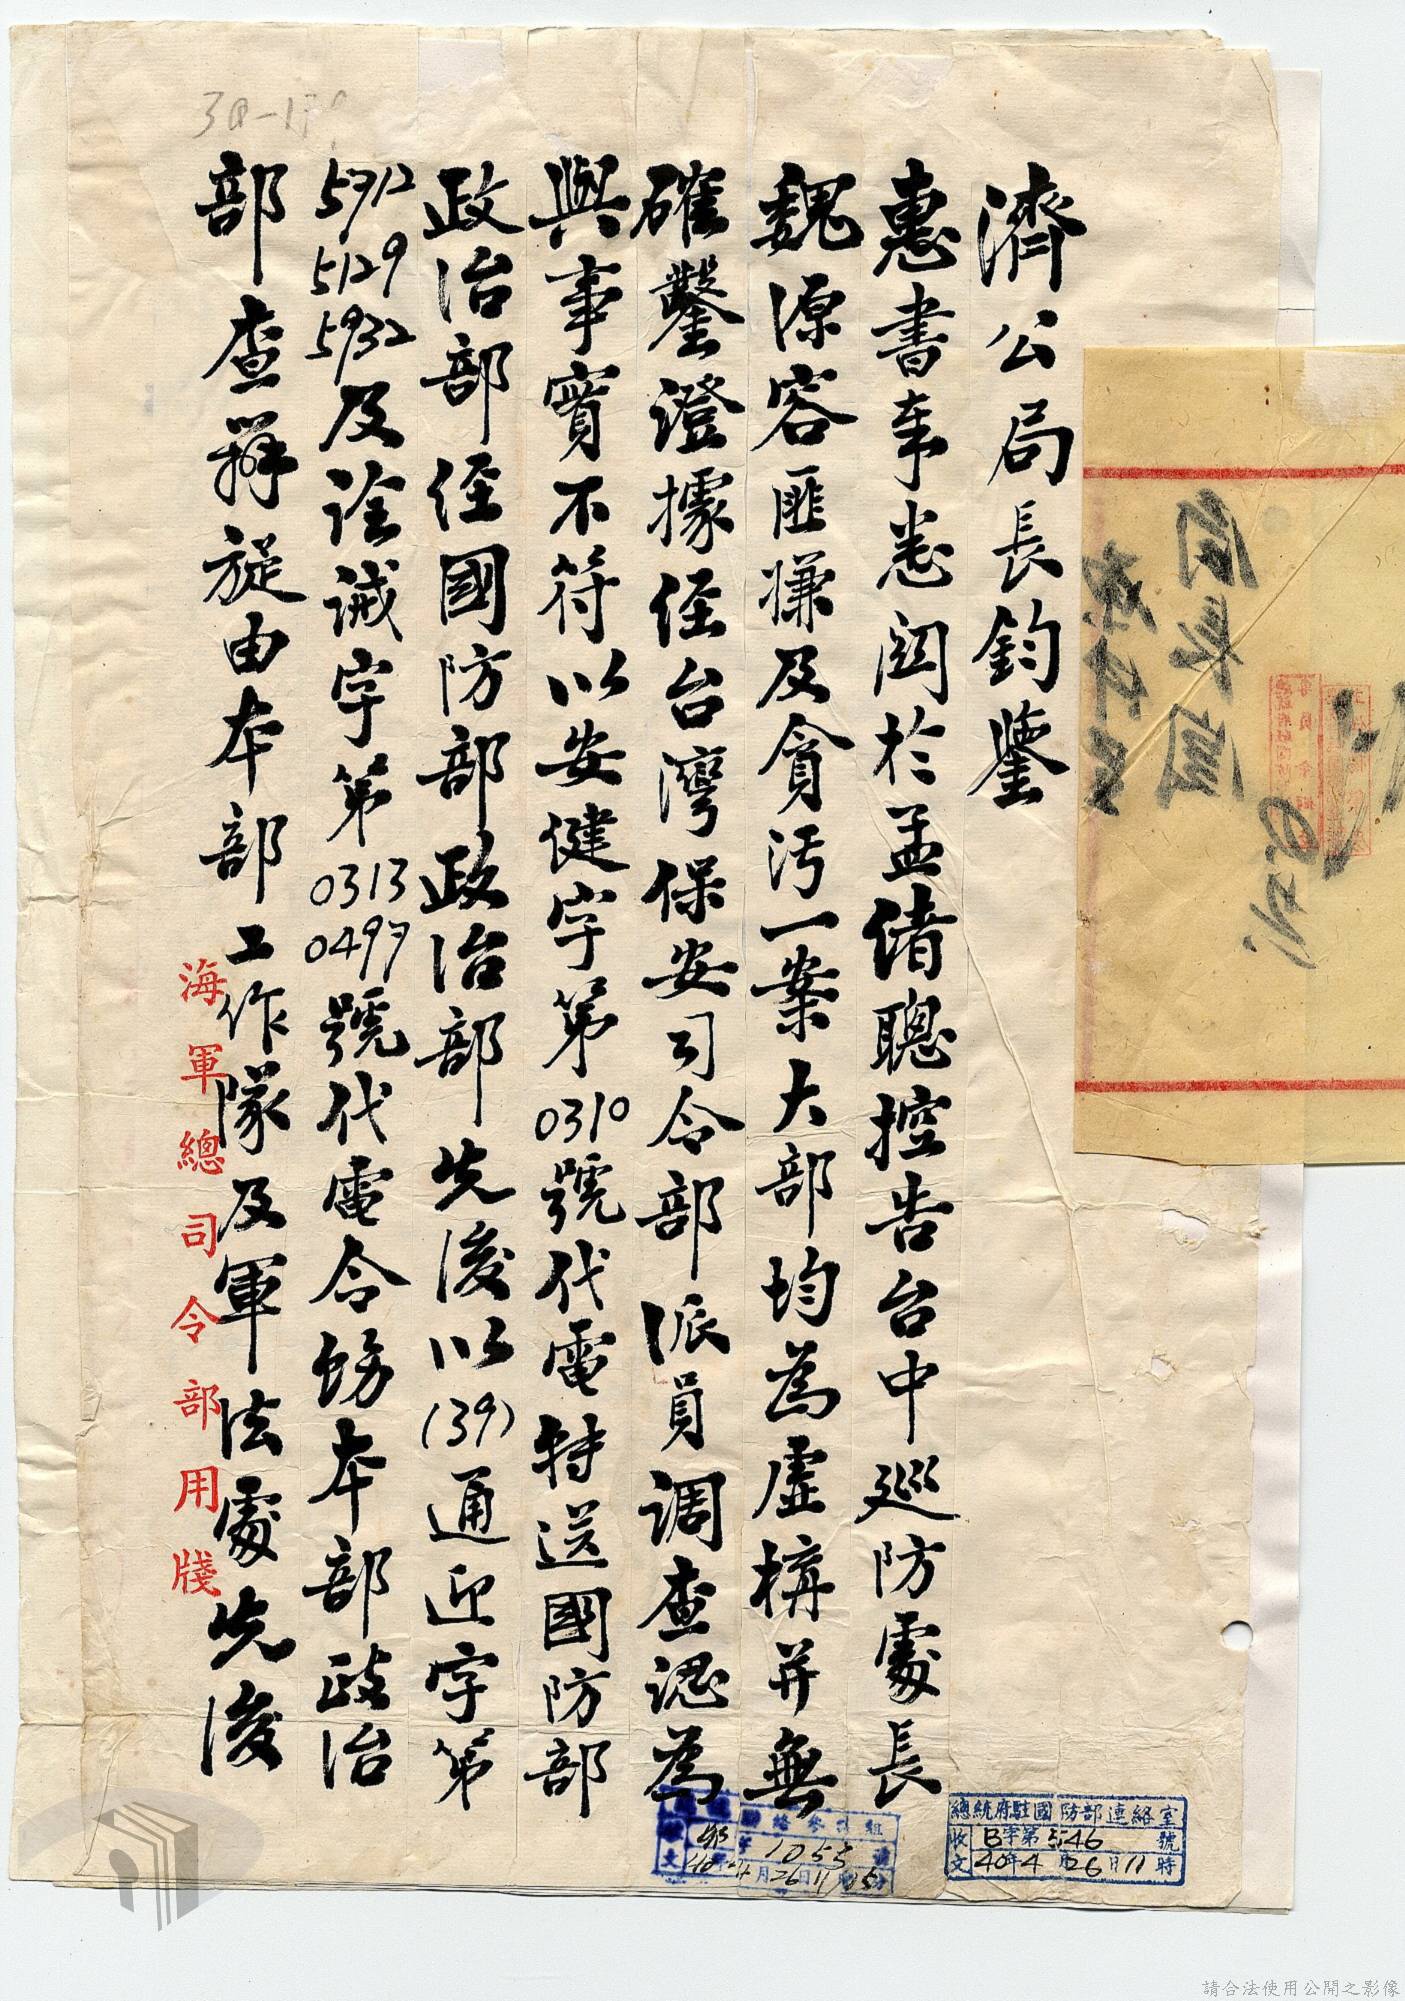 濟公局長鈞鑒
惠書奉悉関於孟緒聰控告台中巡防處長
魏源容匪嫌及貪污一案大部均為虛構并無
確鑿證據經台灣保安司令部派員調查認為
與事實不符以安健字第0310號代電特送國防部
政治部經國防部政治部先後以(39)通迎字第
5712 5129 5932及詮誠字第0313 0497號代電令飭本部政治
部查辦旋由本部工作隊及軍法處先後
海軍總司令部用牋
總統府駐國防部連絡室
收文 B字第5546號
40年4月26日11時
1055
月26日11
請合法使用公開之影像